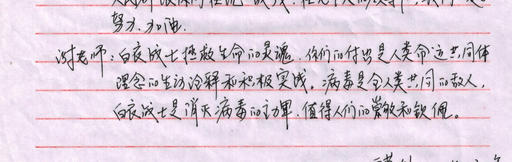 努力、加油.
谢老师:白衣战士拯救生命的灵魂.你们的付出是人类命运共同体
理念的生动诠释和积极实践。病毒是全人类共同的敌人,
白衣战士是消灭病毒的主力军.值得人们的崇敬和钦佩。